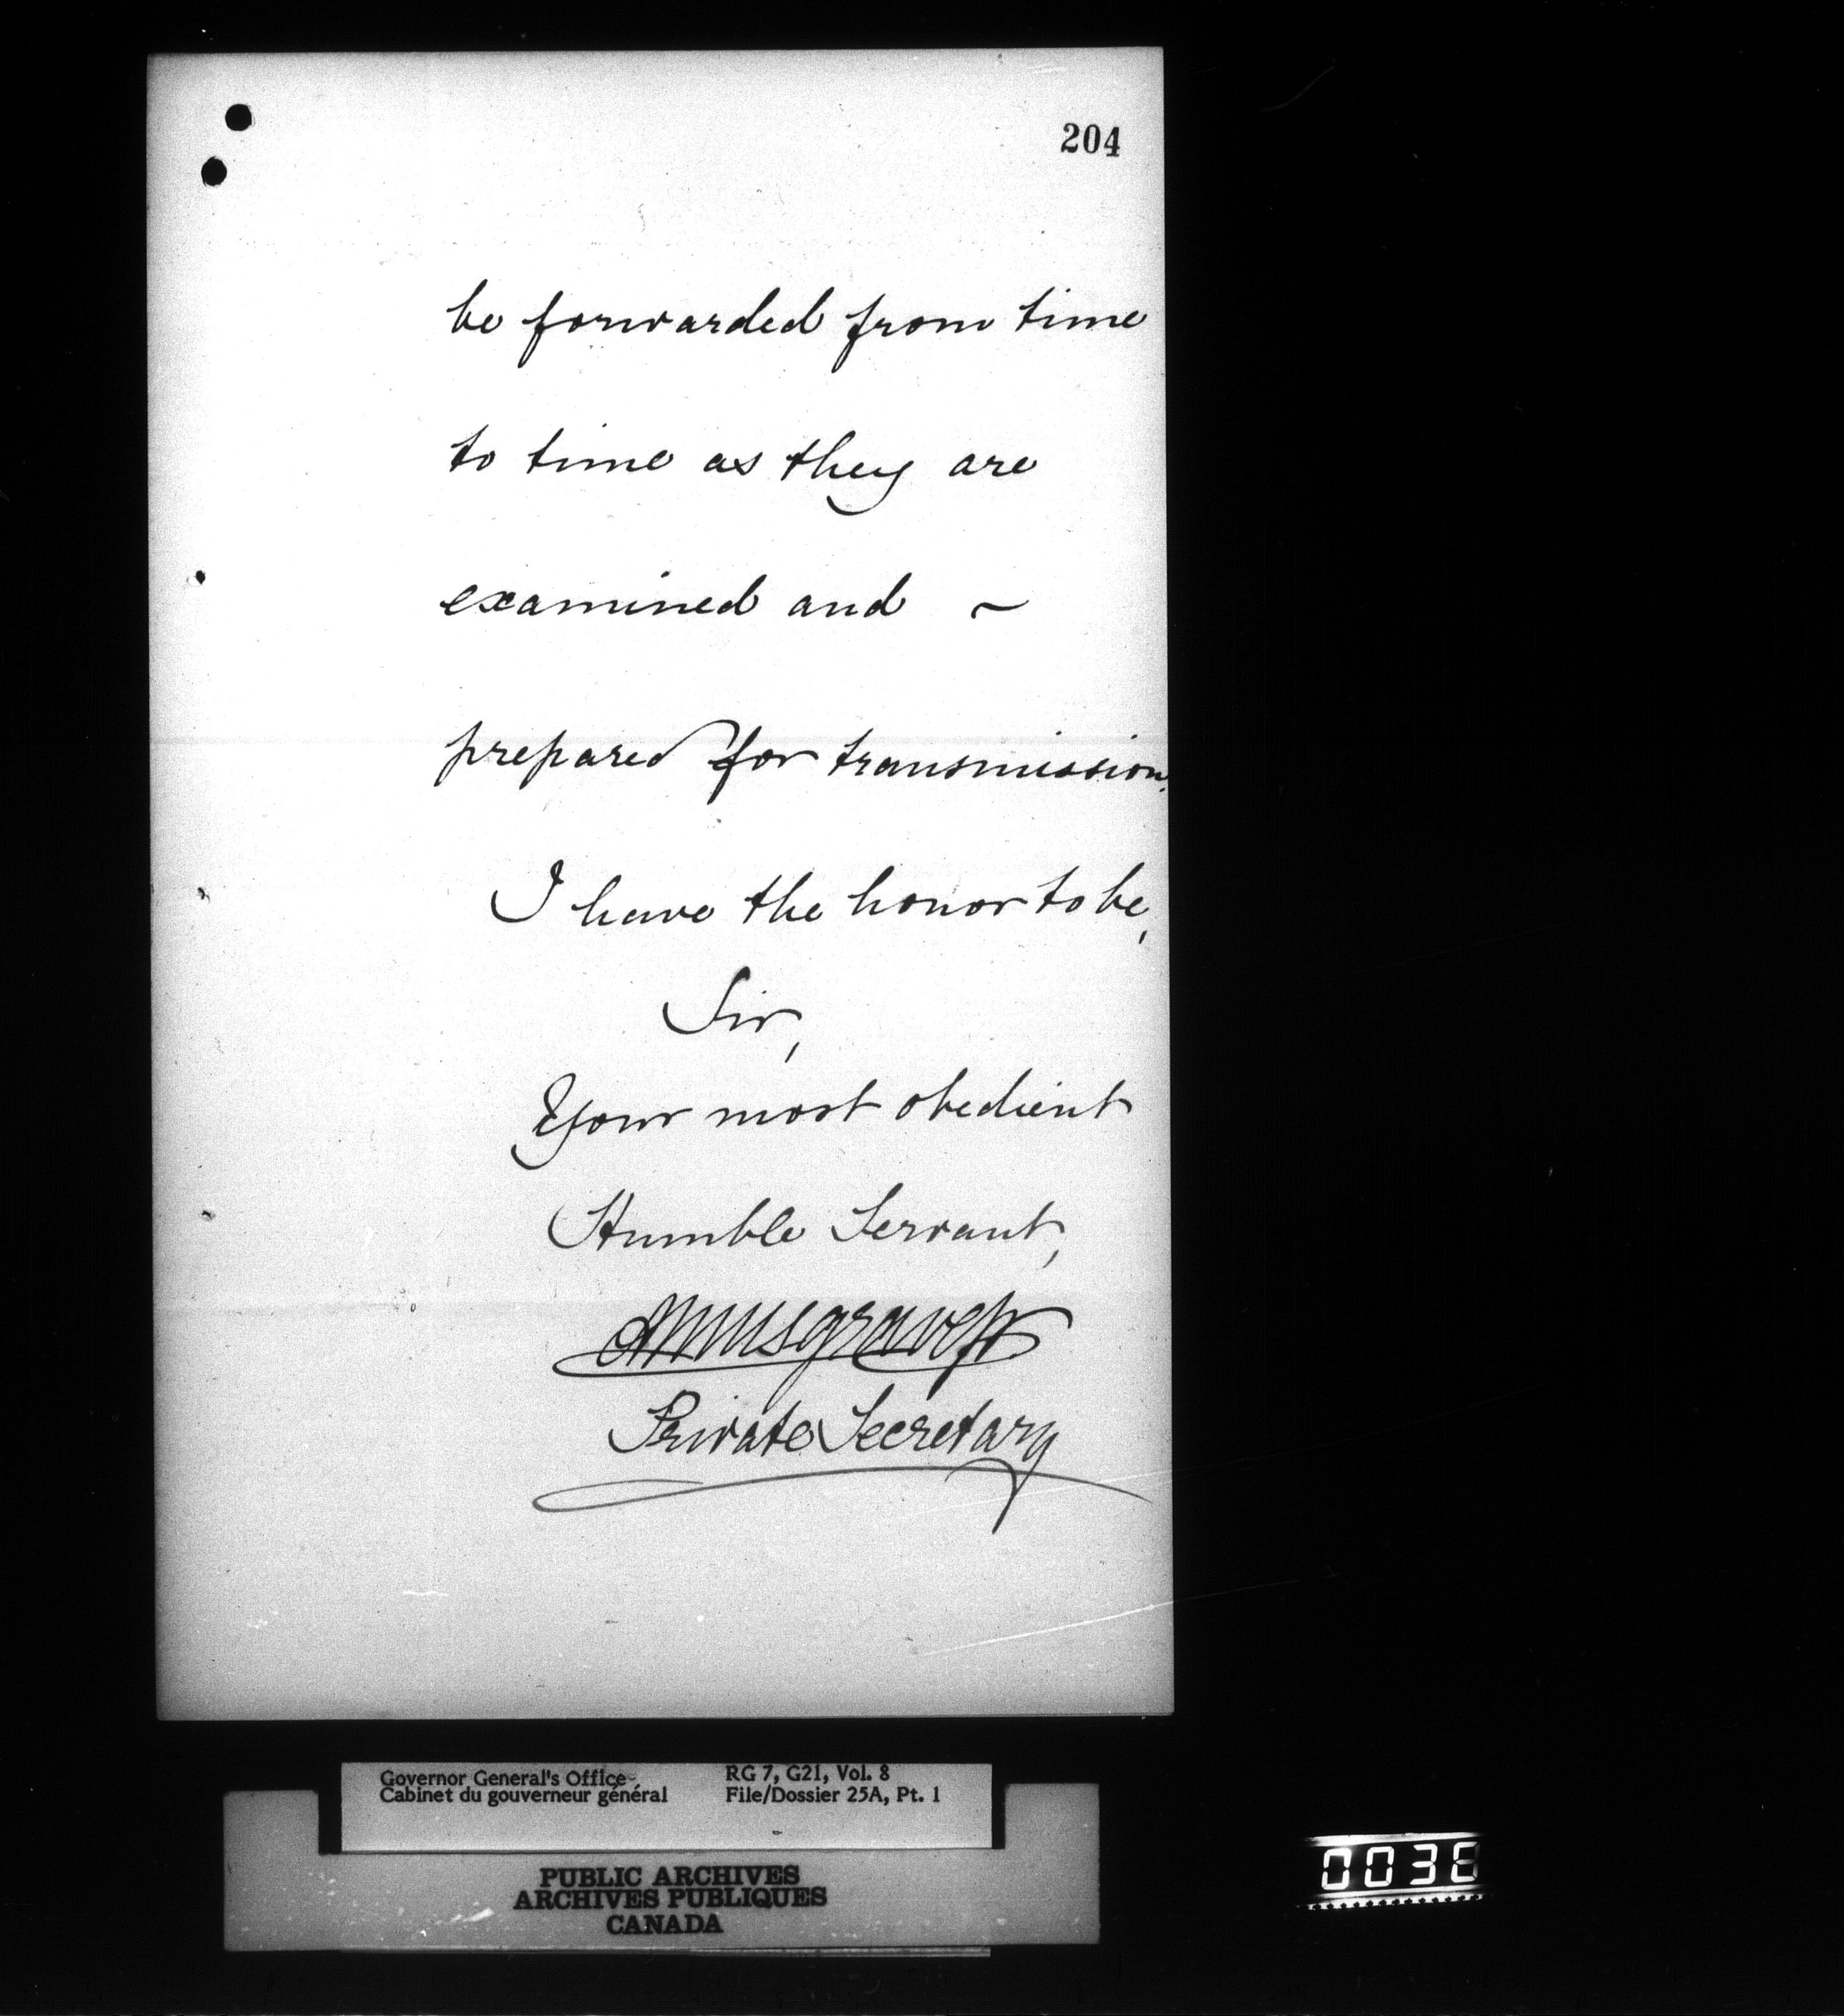 204
be forwarded from time
to time as they are
examined and ~
prepared for transmission.
I have the honor to be,
Sir,
Your most obedient
Humble Servant,
Musgrave
Private Secretary
Governor General's Office
Cabinet du gouverneur général
RG 7, G21, Vol. 8
File/Dossier 25A, Pt. 1
PUBLIC ARCHIVES
ARCHIVES PUBLIQUES
CANADA